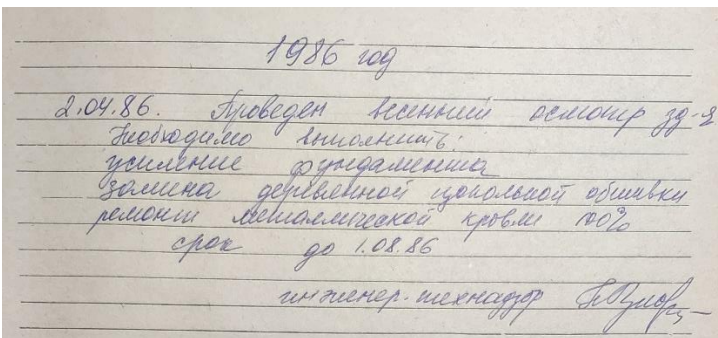 1986 год
2.04.86. Проведен весенний осмотр зд-я
Необходимо выполнить:
усиление фундамента
замена деревянной цокольной обшивки
ремонт металлической кровли 100%
срок до 1.08.86
инженер-технадзор